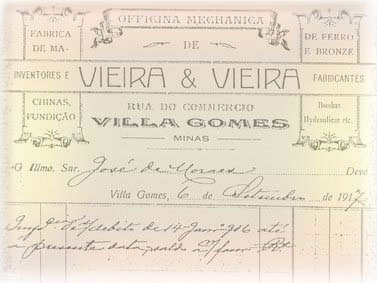 OFFICINA MECHANICA
FABRICA
DE MA-
DE
DE FERRO
E BRONZE
INVENTORES E VIEIRA & VIEIRA FABRICANTES
CHINAS,
FUNDIÇÃO
RUA DO COMMERCIO
VILLA GOMES
MINAS
Bombas
Hydraulicas etc.
O Illmo. Snr. José de Moraes Deve
Villa Gomes, 6 de Setembro de 1917
debito de 14 Jan. 916 até
a presente data, saldo a